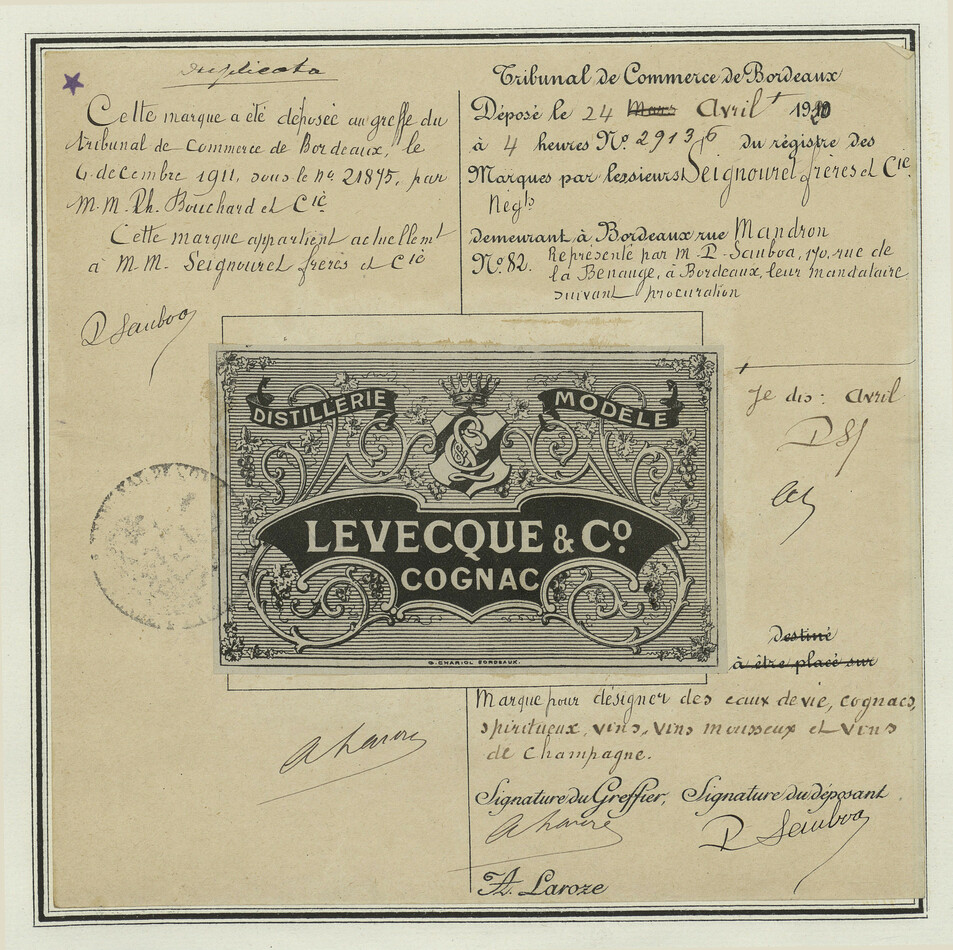 Duplicata
Cette marque a été déposée au greffe du
tribunal de commerce de Bordeaux, le
6 decembre 1911, sous le no 21875, par
M.M. Ph. Bouchard et Cie
Cette marque appartient actuellemt
à M.M. Seignouret frères et Cie
P Sauboa
Tribunal de Commerce de Bordeaux
Déposé le 24 Mars Avril 1920
à 4 heures No. 29136 du régistre des
Marques par les sieurs Seignouret frères et Cie.
Négts
demeurant à Bordeaux rue Mandron
No. 82. Représenté par M. P. Sauboa, 170, rue de
la Benauge, à Bordeaux, leur mandataire
suivant procuration
Je dis : Avril
PS
DISTILLERIE MODÈLE
LEVECQUE & Co.
COGNAC
G. CHARIOL BORDEAUX.
Destiné
à être placé sur
Marque pour désigner des eaux de vie, cognacs,
spiritueux, vins, vins mousseux et vins
de Champagne.
Signature du Greffier, Signature du déposant
P Sauboa
A. Laroze